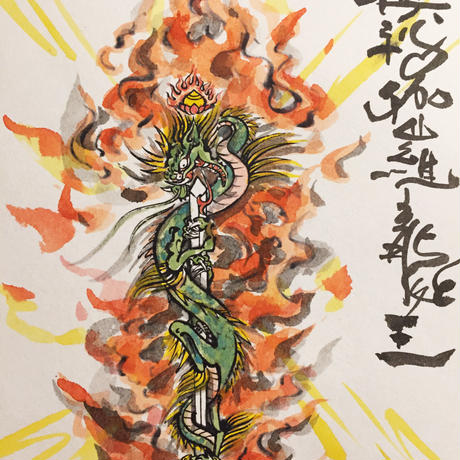 利伽羅龍王